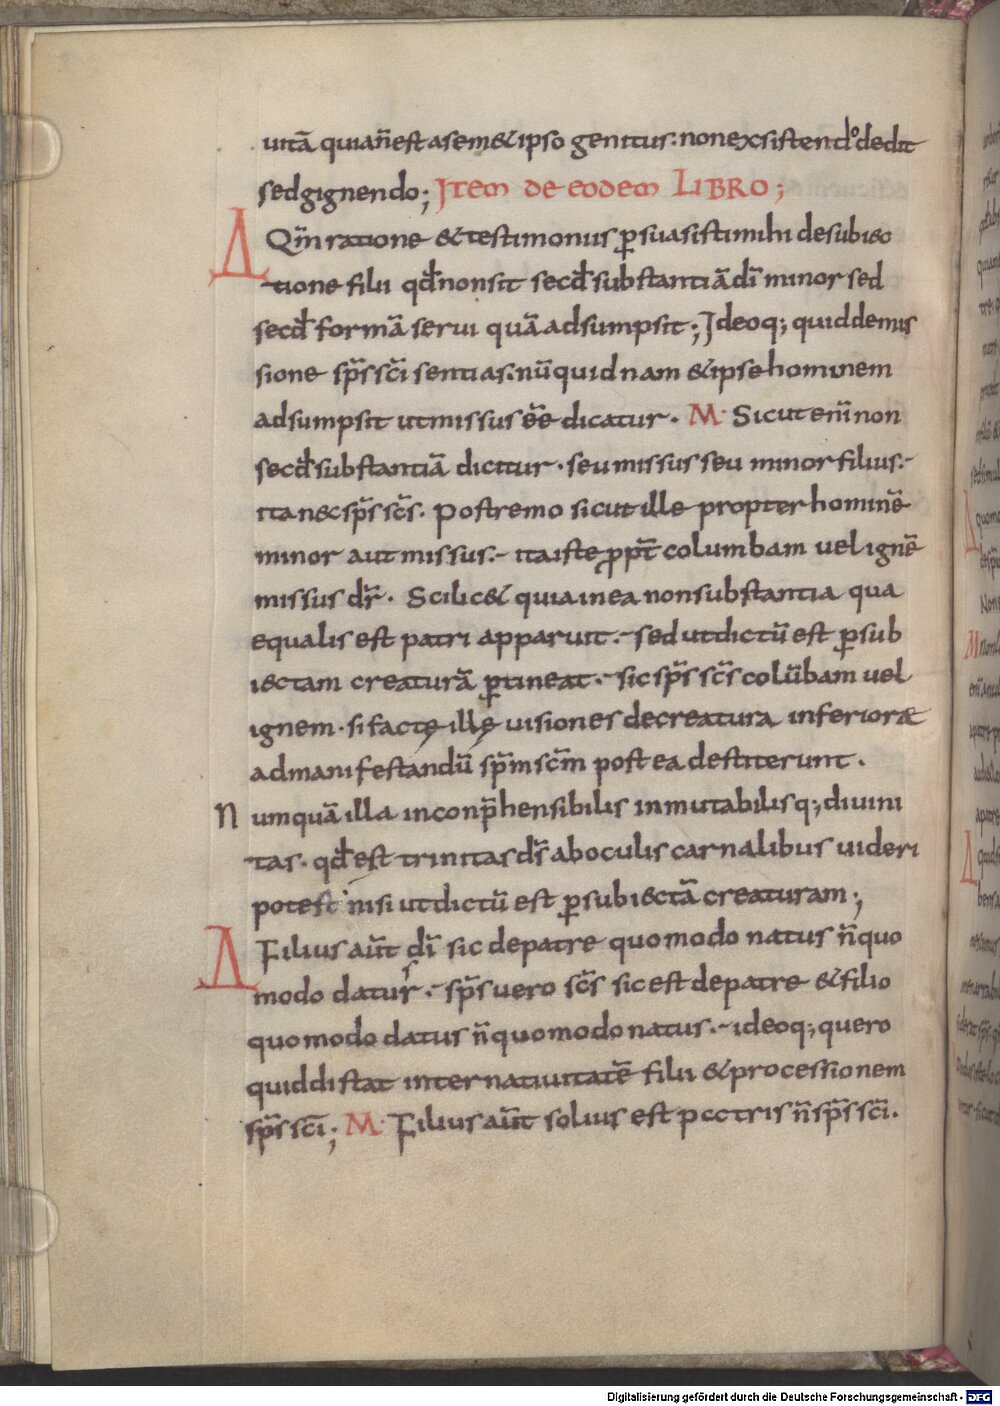 uitā quian̄est asem&ipso genitus: nonexsistend͡o dedit
sedgignendo; Item de eodem LIBRO;
Δ Qm̄ ratione & testimoniis ꝑsuasisti mihi de subiec
tione filii qd̄ non sit secd̄ substantiā dī minor sed
secd̄ formā serui quā adsumpsit; Ideoq; quid de mis
sione sp̄s sc̄i sentias. nūquid nam & ipse hominem
adsumpsit ut missus eē dicatur. M· Sicut enī non
secd̄ substantiā dicitur · seu missus seu minor filius.-
ita nec sp̄s sc̄s. Postremo sicut ille propter hominē
minor aut missus.- ita iste ꝓpt̄ columbam uel ignē
missus dr̄. Scilic& quia in ea non substantia qua
equalis est patri apparuit.- sed ut dictū est ꝑ sub
iectam creaturā ꝑtineat.- sic sp̄s sc̄s colūbam uel
ignem · si factę illę uisiones de creatura inferiorae
ad manifestandū sp̄m sc̄m postea destiterunt.
Numquā illa inconp̄hensibilis inmutabilisq; diuini
tas. qd̄ est trinitas dr̄ ab oculis carnalibus uideri
potest nisi ut dictū est ꝑ subiectā creaturam;
Δ Filius aūt dī sic de patre quomodo natus n̄ quo
modo datus.- sp̄s uero sc̄s sic est de patre & filio
quomodo datus n̄ quomodo natus.- ideoq; quero
quid distat inter natiuitatē filii & processionem
sp̄s sc̄i; M· Filius aūt solius est patris n̄ sp̄s sc̄i.
Digitalisierung gefördert durch die Deutsche Forschungsgemeinschaft - DFG